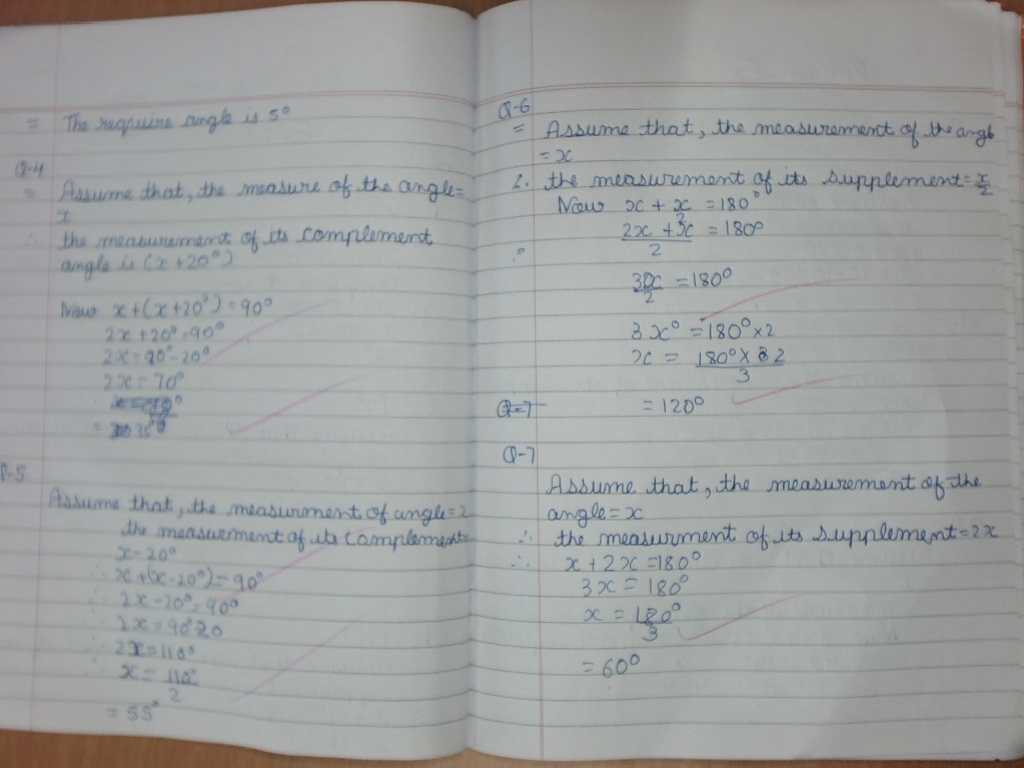 = The require angle is 5°
Q-4
= Assume that, the measure of the angle =
x
∴ the measurement of its complement
angle is (x+20°)
Now x+(x+20°)=90°
2x+20°=90°
2x=90°-20°
2x=70°
= 35°
Q-5
Assume that, the measurment of angle=x
the measurment of its complement=
x-20°
∴ x+(x-20°)=90°
∴ 2x-20°=90°
∴ 2x=90°20
∴ 2x=110°
∴ x=110°
2
=55°
Q-6
= Assume that, the measurement of the angle
=x
∴ the measurement of its supplement=x/2
Now x+x =180°
2
2x+x =180°
2
3x =180°
2
3x°=180°×2
x = 180°×2
3
=120°
Q-7
Q-7
Assume that, the measurement of the
angle=x
∴ the measurment of its supplement=2x
∴ x+2x=180°
3x=180°
x =180°
3
=60°